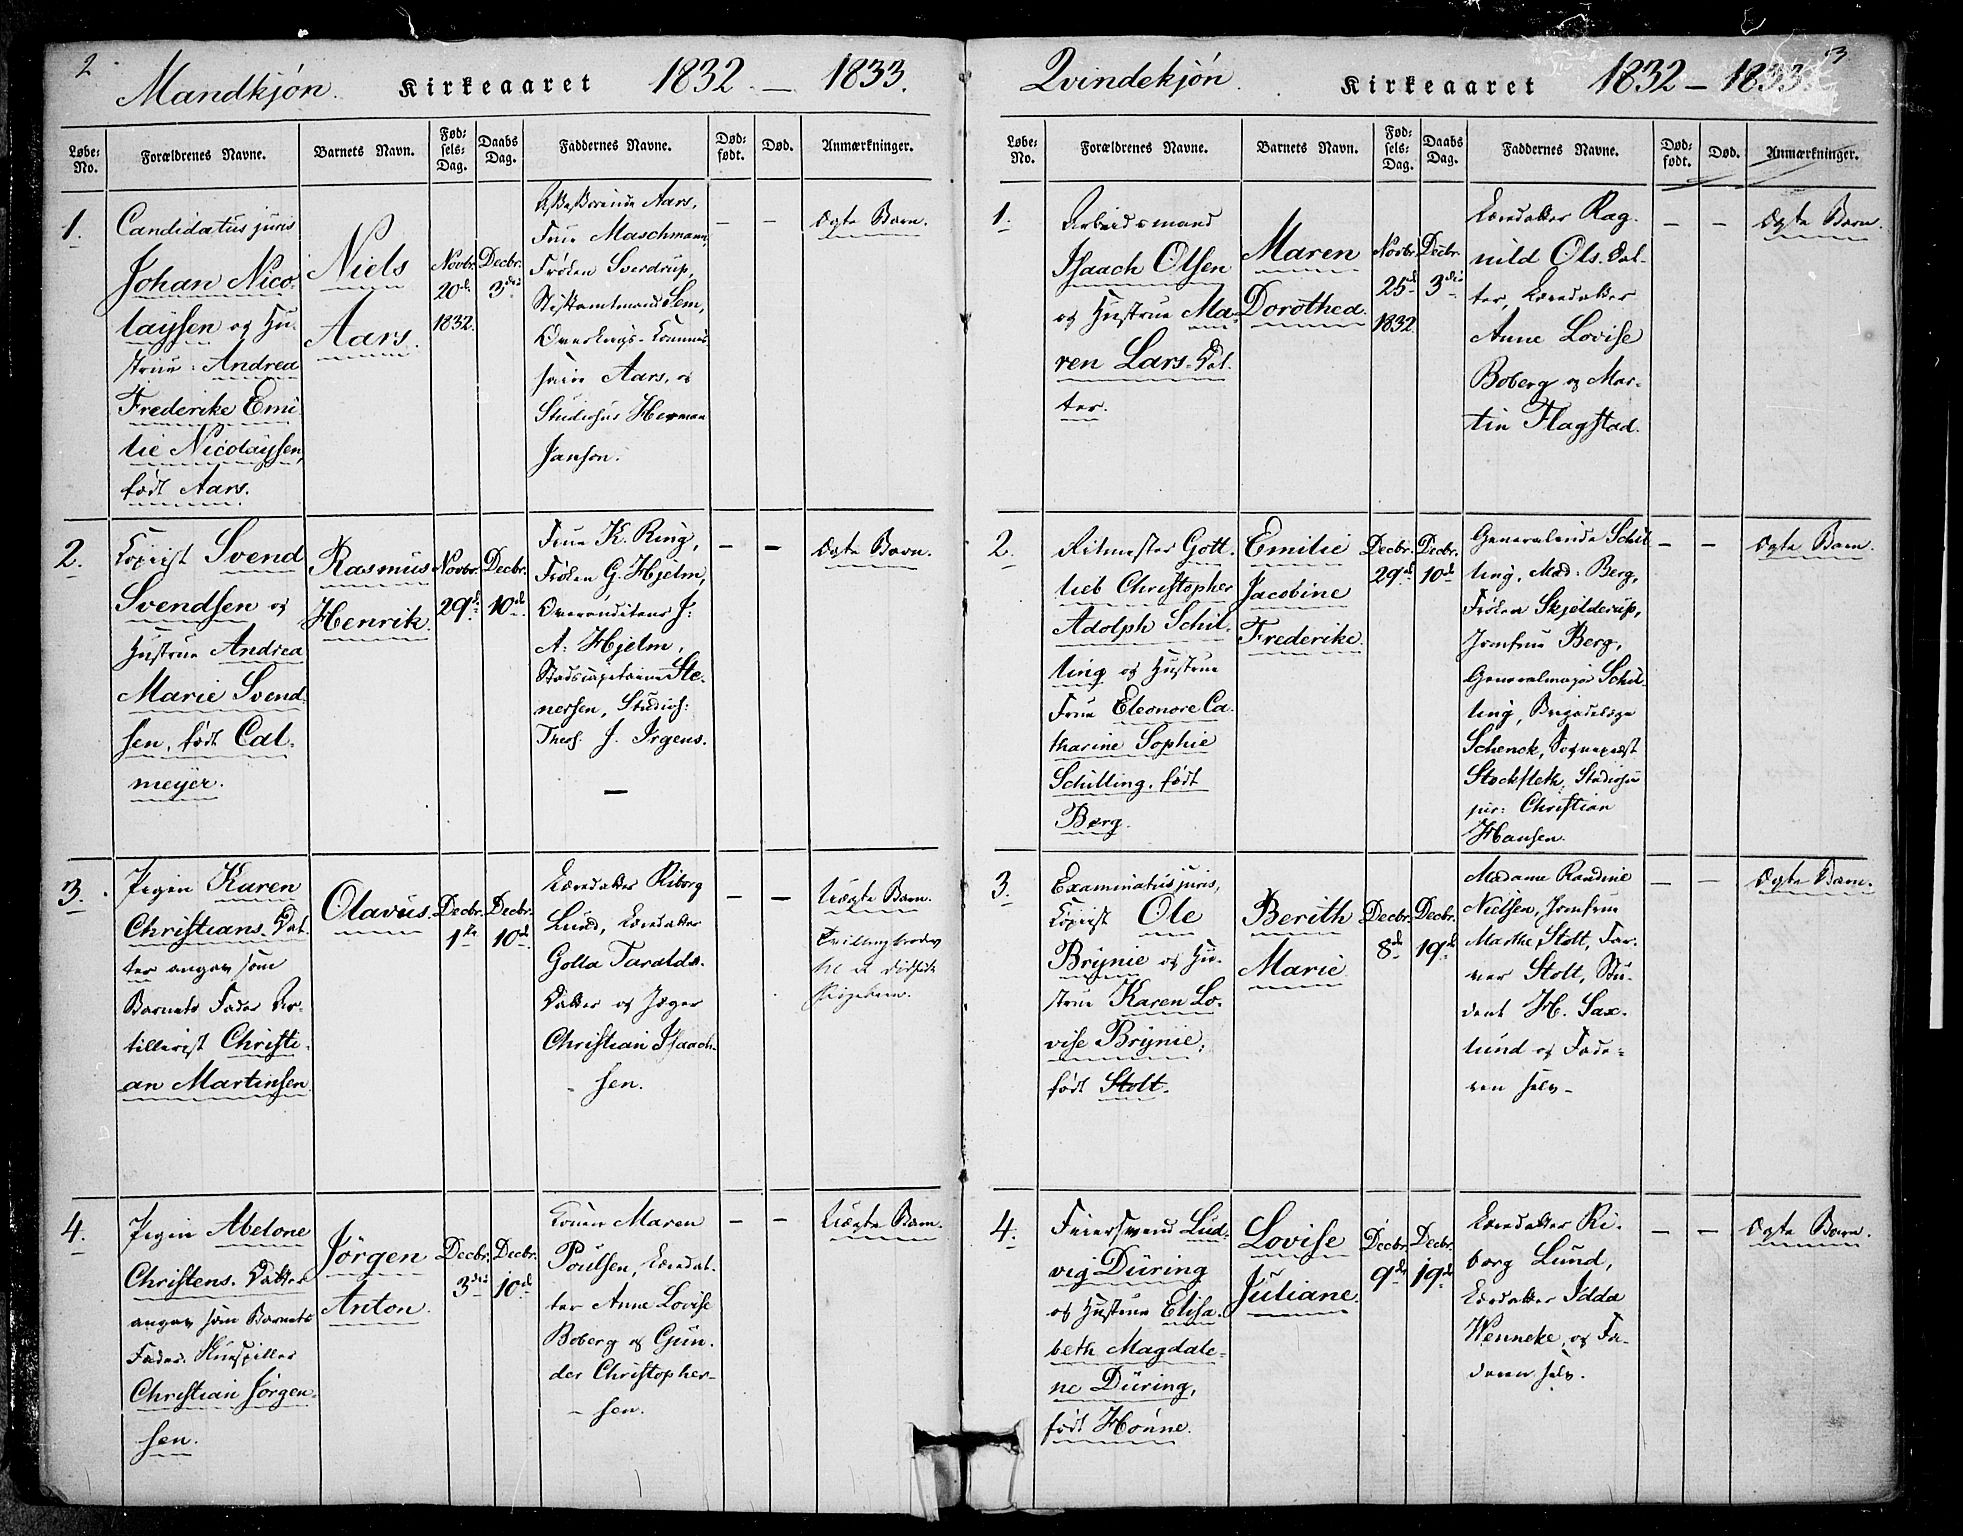 2
Mandkjøn. Kirkeaaret 1832. — 1833.
Løbe-No.
Forældrenes Navne.
Barnets Navn.
Fødselsdag.
Daabs Dag.
Faddernes Navne.
Dødfødt.
Død.
Anmærkninger.
1.
Candidatus juris
Johan Nico-
laysen og Hu-
strue Andrea
Frederike Emi-
lie Nicolaysen,
født Aars.
Niels
Aars.
Novbr.
20de
1832.
Decbr.
3die
Aars,
Frue Maschmann,
Frøken Sverdrup,
Stiftamtmand Sem,
Aars, og
Studiosus Herman
Janson.
—
—
Ægte Barn.
2.
Copiist Svend
Svendsen og
Hustrue Andrea
Marie Svend-
sen, født Cal-
meyer.
Rasmus
Henrik.
Novbr.
29de
Decbr.
10de
Frue K. Ring,
Frøken G. Hjelm,
J:
A: Hjelm,
Stadscapitaine Ste-
nersen, Studios:
Theol. J. Irgens.
—
—
—
Ægte Barn.
3.
Pigen Karen
Christians. Dat-
ter angav som
Barnets Fader Ar-
tillerist Christi-
an Martinsen.
Olavus.
Decbr.
1ste
Decbr.
10de
Læredatter Riborg
Lund, Læredatter
Golla Taralds.
Datter og Jæger
Christian Isaach-
sen.
—
—
Uægte Barn.
Tvillingbroder
til et dødfødt
Pigebarn.
4.
Pigen Abelone
Christens. Datter
angav som Barnets
Fader Skuespiller
Christian Jørgen-
sen.
Jørgen
Anton.
Decbr.
3die
Decbr.
10de
Konen Maren
Poulsen, Læredat-
ter Anne Lovise
Boberg og Gun-
der Christopher-
sen.
—
—
Uægte Barn.
3.
Qvindekjøn. Kirkeaaret 1832 — 1833.
Løbe-No.
Forældrenes Navne.
Barnets Navn.
Fødselsdag.
Daabs Dag.
Faddernes Navne.
Dødfødt.
Død.
Anmærkninger.
1.
Arbeidsmand
Isaach Olsen
og Hustrue Ma-
ren Lars. Dat-
ter.
Maren
Dorothea.
Novbr.
25de
1832.
Decbr.
3die
Læredatter Rag-
nild Ols. Dat-
ter, Læredatter
Anne Lovise
Boberg og Mar-
tin Flagstad.
—
—
Ægte Barn.
2.
Ritmester Gott-
lieb Christopher
Adolph Schil-
ling og Hustrue
Frue Eleonore Ca-
tharine Sophie
Schilling, født
Berg.
Emilie
Jacobine
Frederike.
Decbr.
29de
Decbr.
10de
Generalinde Schil-
ling, Mad: Berg,
Frøken Skjelderup,
Jomfrue Berg,
Generalmajor Schil-
ling, Brigadelæge
Schenck, Sognepræst
Stockfleth, Studiosus
jur: Christian
Hansen.
—
—
Ægte Barn.
3.
Examinatus juris,
Copiist Ole
Brynie og Hu-
strue Karen Lo-
vise Brynie,
født Stolt.
Berith
Marie.
Decbr.
8de
Decbr.
19de
Madame Randine
Nielsen, Jomfrue
Marthe Stolt, Far-
ver Stolt, Stu-
dent H. Sax-
lund og Fade-
ren selv.
—
—
Ægte Barn.
4.
Feiersvend Lud-
vig Düring
og Hustrue Elisa-
beth Magdale-
ne Düring,
født Hønne.
Lovise
Juliane.
Decbr.
9de
Decbr.
19de
Læredatter Ri-
borg Lund,
Læredatter Idda
Wenneke, og Fa-
deren selv.
—
—
Ægte Barn.